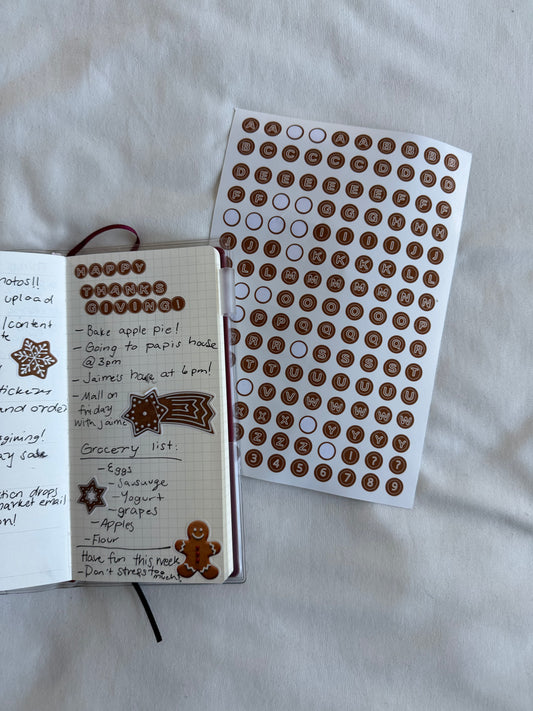 hotos!!
upload
/content
stickers
and order
gining!
ay sale
tion drops
market email
on!
HAPPY
THANKS
GIVING!
- Bake apple pie!
- Going to papis house
@3pm
- Jaime's house at 6pm!
- Mall on
friday
with jaime
Grocery list:
- Eggs
- Sausuage
- Yogurt
- grapes
- Apples
- Flour
Have fun this week
- Don't stress too
much!
A A A A B B B
B C C C C C D D
D E E E E E E F
F F G G G H H
I I I J
J J J K K K L
L L M M M M N
N O O O O O P
P P Q Q Q R R
R R S S S S
T T T U U U U
V V V W W W
X X X Y Y Y
Z Z Z ! ? ?
3 4 5 6 7 8 9